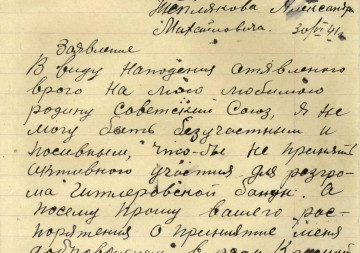 Теплякова Александра
Михайловича. 30/VI 41
Заявление
В виду нападения отявленого
врага на мою любимую
родину Советский Союз, я не
могу быть безучастным и
пасивным, что-бы не принять
активного участия для разгро-
ма Гитлеровской банды. А
посему прошу вашего рас-
поряжения о принятие меня
добровольцем в ряды Красной